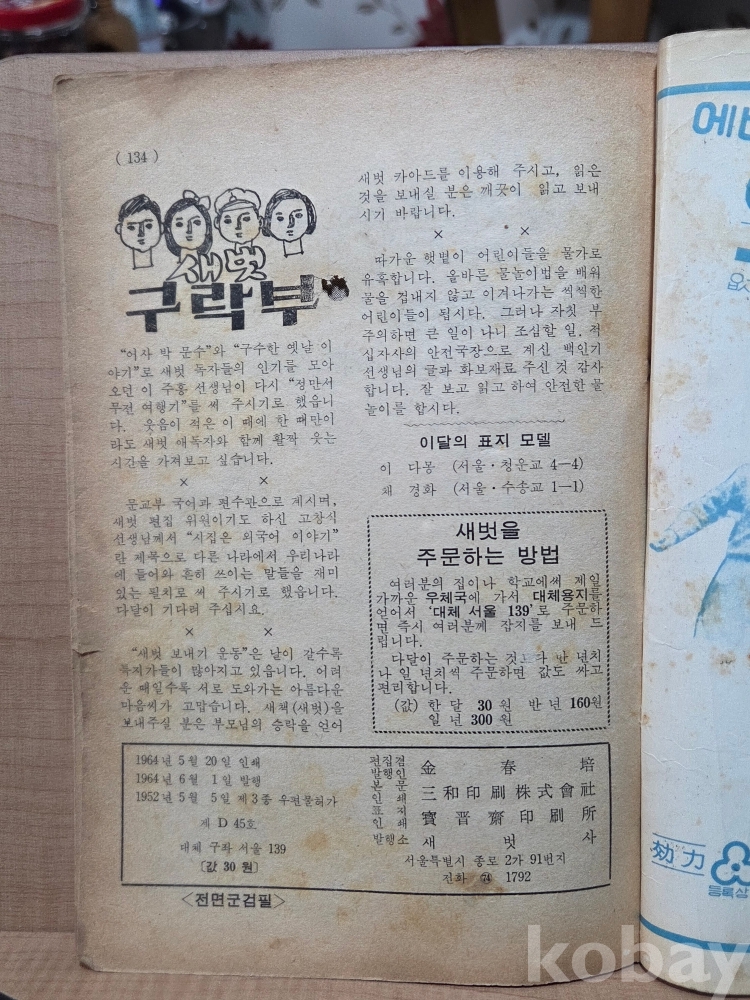 ( 134 )
새벗
구락부
"여자 박 문수"와 "구수한 옛날 이
야기"로 새벗 독자들의 인기를 모아
오던 이 주홍 선생님이 다시 "정만서
무전 여행기"를 써 주시기로 했읍니
다. 웃음이 적은 이 때에 한 때만이
라도 새벗 애독자와 함께 활짝 웃는
시간을 가져보고 싶습니다.
× ×
문교부 국어과 편수관으로 계시며,
새벗 편집 위원이기도 하신 고창식
선생님께서 "시집온 외국어 이야기"
란 제목으로 다른 나라에서 우리나라
에 들어와 흔히 쓰이는 말들을 재미
있는 필치로 써 주시기로 했읍니다.
다달이 기다려 주십시요.
× ×
"새벗 보내기 운동"은 날이 갈수록
독지가들이 많아지고 있읍니다. 어려
운 때일수록 서로 도와가는 아름다운
마음씨가 고맙습니다. 새책(새벗)을
보내주실 분은 부모님의 승락을 얻어
새벗 카아드를 이용해 주시고, 읽은
것을 보내실 분은 깨끗이 읽고 보내
시기 바랍니다.
× ×
따가운 햇볕이 어린이들을 물가로
유혹합니다. 올바른 물놀이법을 배워
물을 겁내지 않고 이겨나가는 씩씩한
어린이들이 됩시다. 그러나 자칫 부
주의하면 큰 일이 나니 조심할 일. 적
십자사의 안전국장으로 계신 백인기
선생님의 글과 화보재료 주신 것 감사
합니다. 잘 보고 읽고 하여 안전한 물
놀이를 합시다.
이달의 표지 모델
이 다몽 (서울·청운교 4—4)
채 경화 (서울·수송교 1—1)
새벗을
주문하는 방법
여러분의 집이나 학교에써 제일
가까운 우체국에 가서 대체용지를
얻어서 '대체 서울 139'로 주문하
면 즉시 여러분께 잡지를 보내 드
립니다.
다달이 주문하는 것보다 반 년치
나 일 년치씩 주문하면 값도 싸고
편리합니다.
(값) 한 달 30 원 반 년 160원
일 년 300 원
1964년 5월 20일 인쇄
1964년 6월 1일 발행
1952년 5월 5일 제3종 우편물허가
제 D 45호
대체 구좌 서울 139
〔값 30 원〕
편집겸 발행인 金春培
본문 인쇄 三和印刷株式會社
표지 인쇄 寶晋齋印刷所
발행소 새벗사
서울특별시 종로 2가 91번지
전화 74 1792
<전면군검필>
에
効力
登록상
kobay